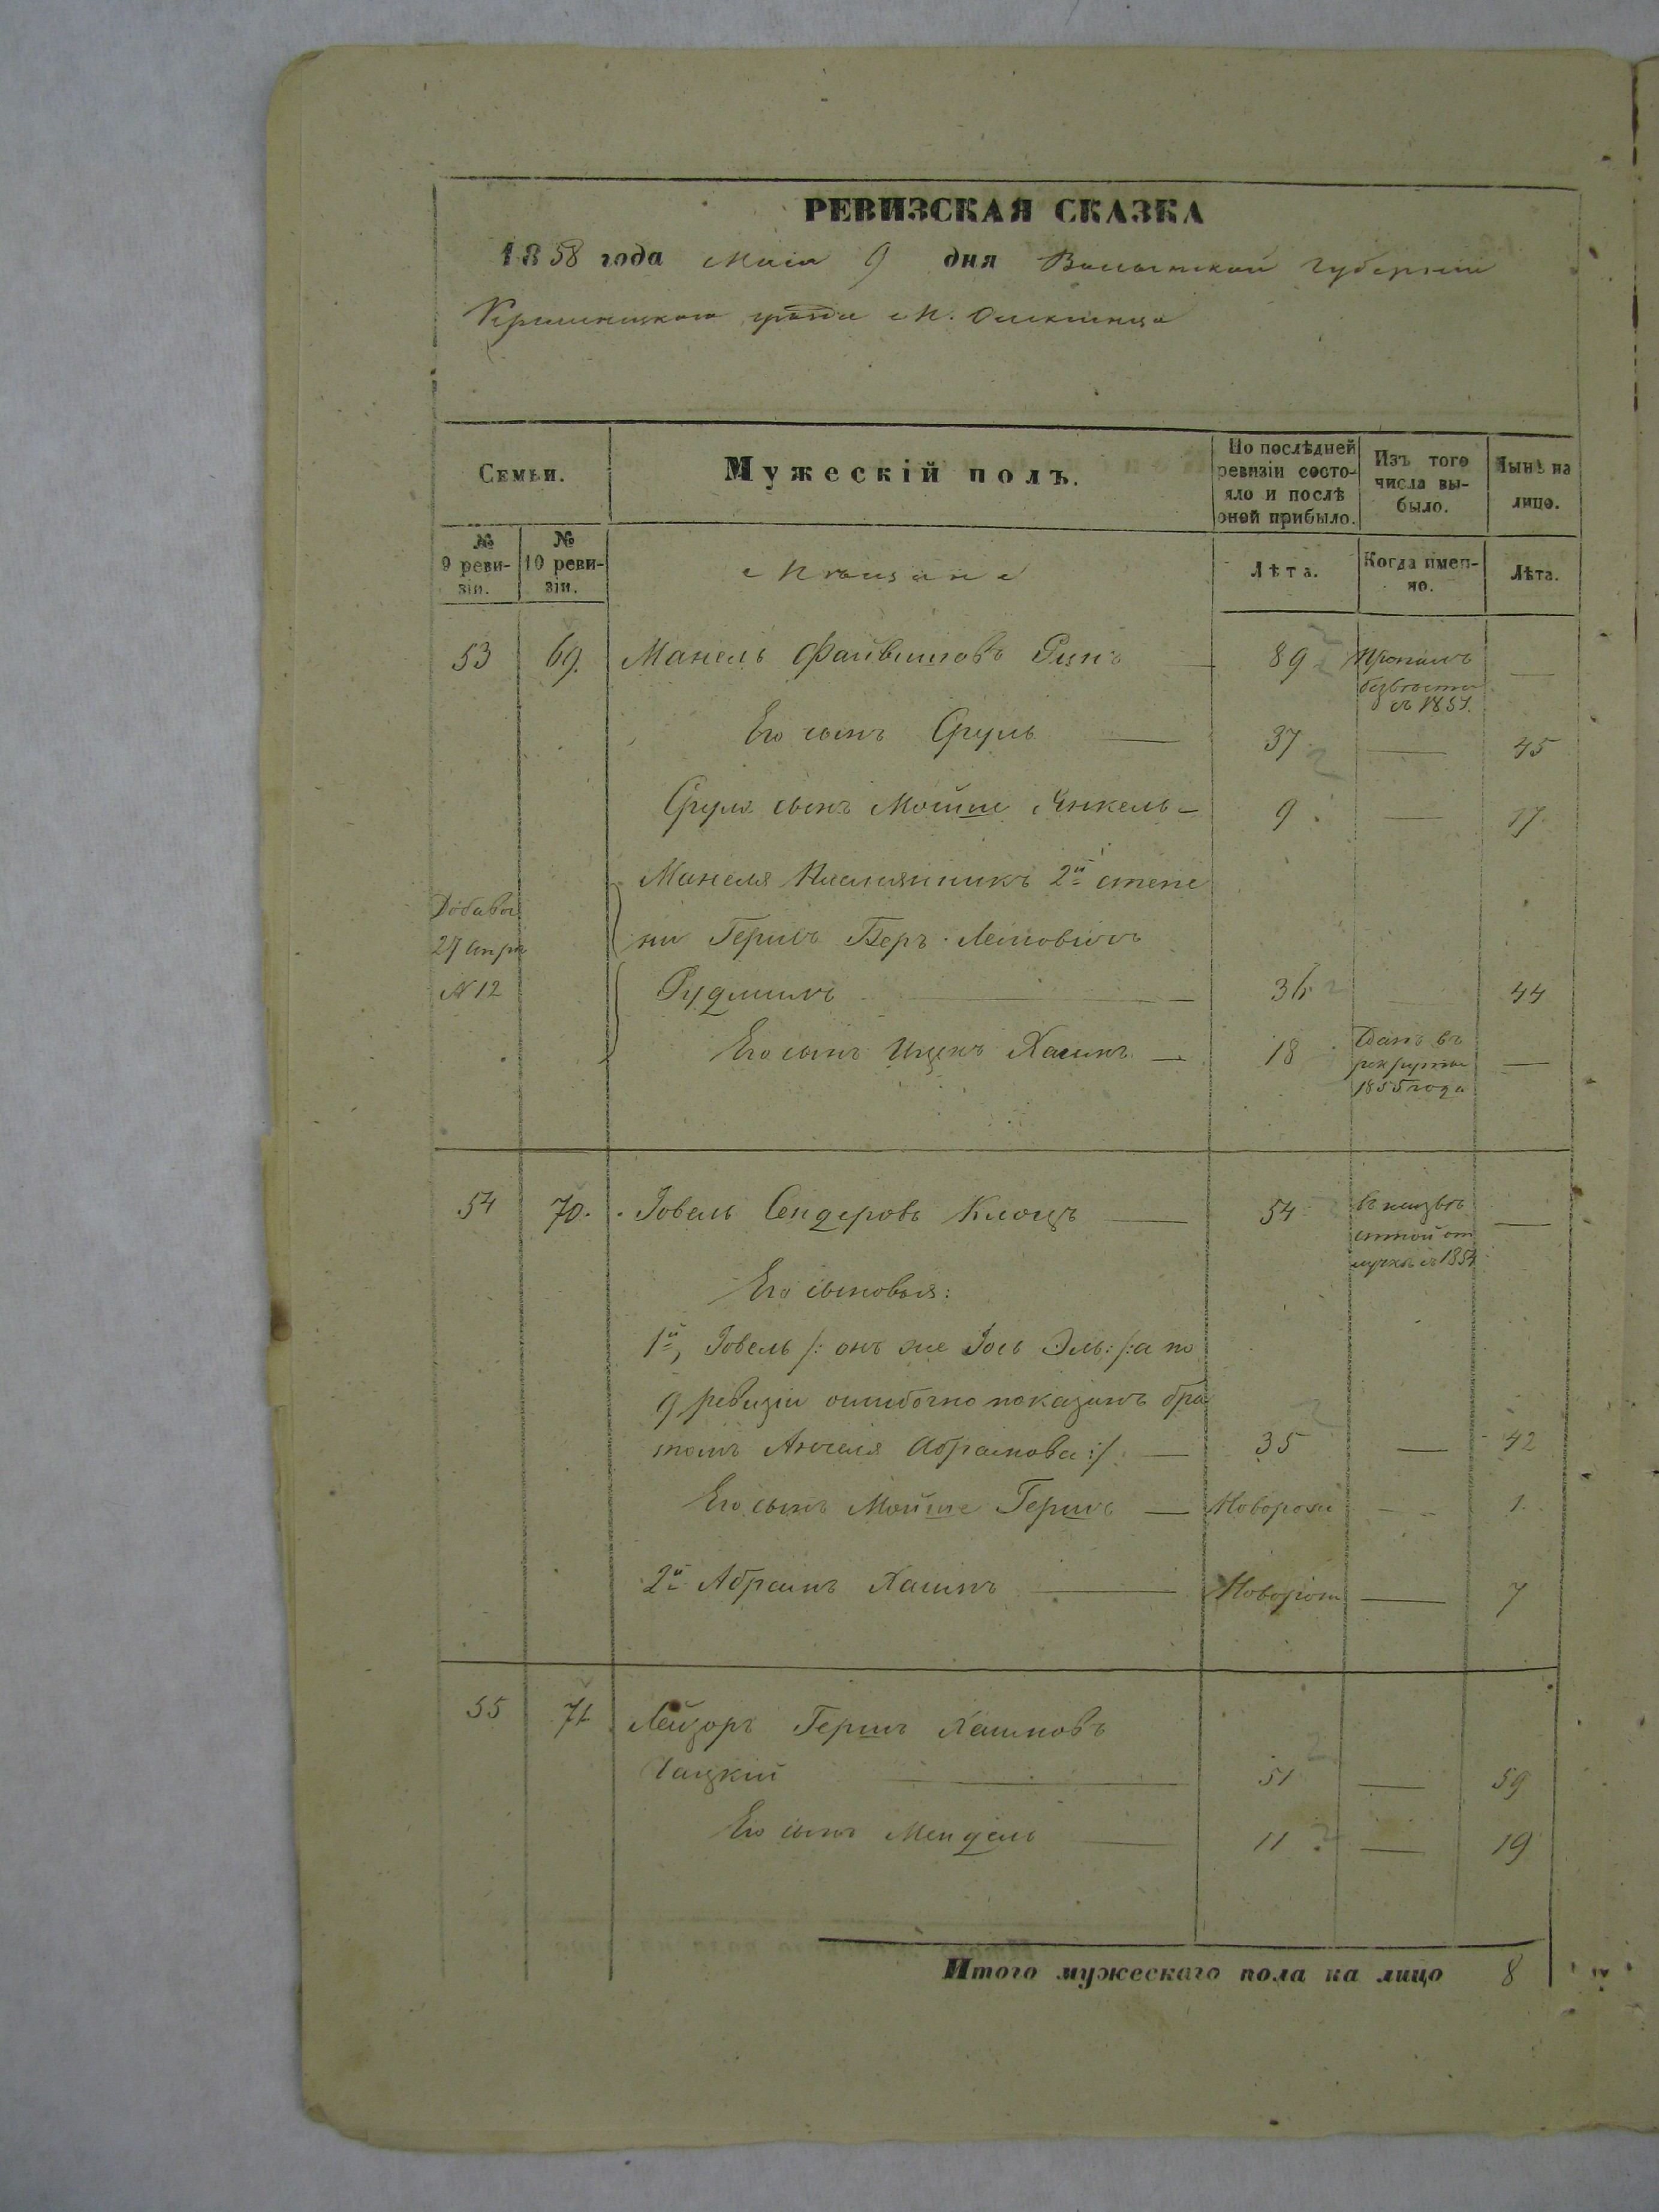 РЕВИЗСКАЯ СКАЗКА
1858 года Маія 9 дня Волынской Губерніи
Кременецкаго уѣзда М. Олексинца
Семьи.
Мужескій полъ.
По послѣдней ревизіи состояло и послѣ оной прибыло.
Изъ того числа выбыло.
Нынѣ на лицо.
№ 9 ревизіи.
№ 10 ревизіи.
Мѣщане
Лѣта.
Когда именно.
Лѣта.
53 69. Манель Файвишовъ 89 Пропалъ
безвѣсти
съ 1851.
Его сынъ Сруль 37 45
Сруля сынъ Мойше Янкель 9 17
Манеля Племянникъ 2й степе
Добавоч
27 Апрѣ
№ 12
ни Гершъ Беръ Лейбовичъ
36 44
Его сынъ Ицекъ Хаимъ 18 Данъ въ
рекруты
1855 года
54 70. Іовель Сендеровъ Клоцъ 54 въ неизвѣ
стной от
лучкѣ съ 1854
Его сыновья:
1й, Іовель /: онъ же Іось Эль :/: а по
9 ревизіи ошибочно показанъ бра
томъ Анчеля Абрамова :/ 35 42
Его сынъ Мойше Гершъ Новорож 1.
2й Абрамъ Хаимъ Новорож 7
55 71 Лейзоръ Гершъ Хаимовъ
Хацкій 51 59
Его сынъ Мендель 11 19
Итого мужескаго пола на лицо 8